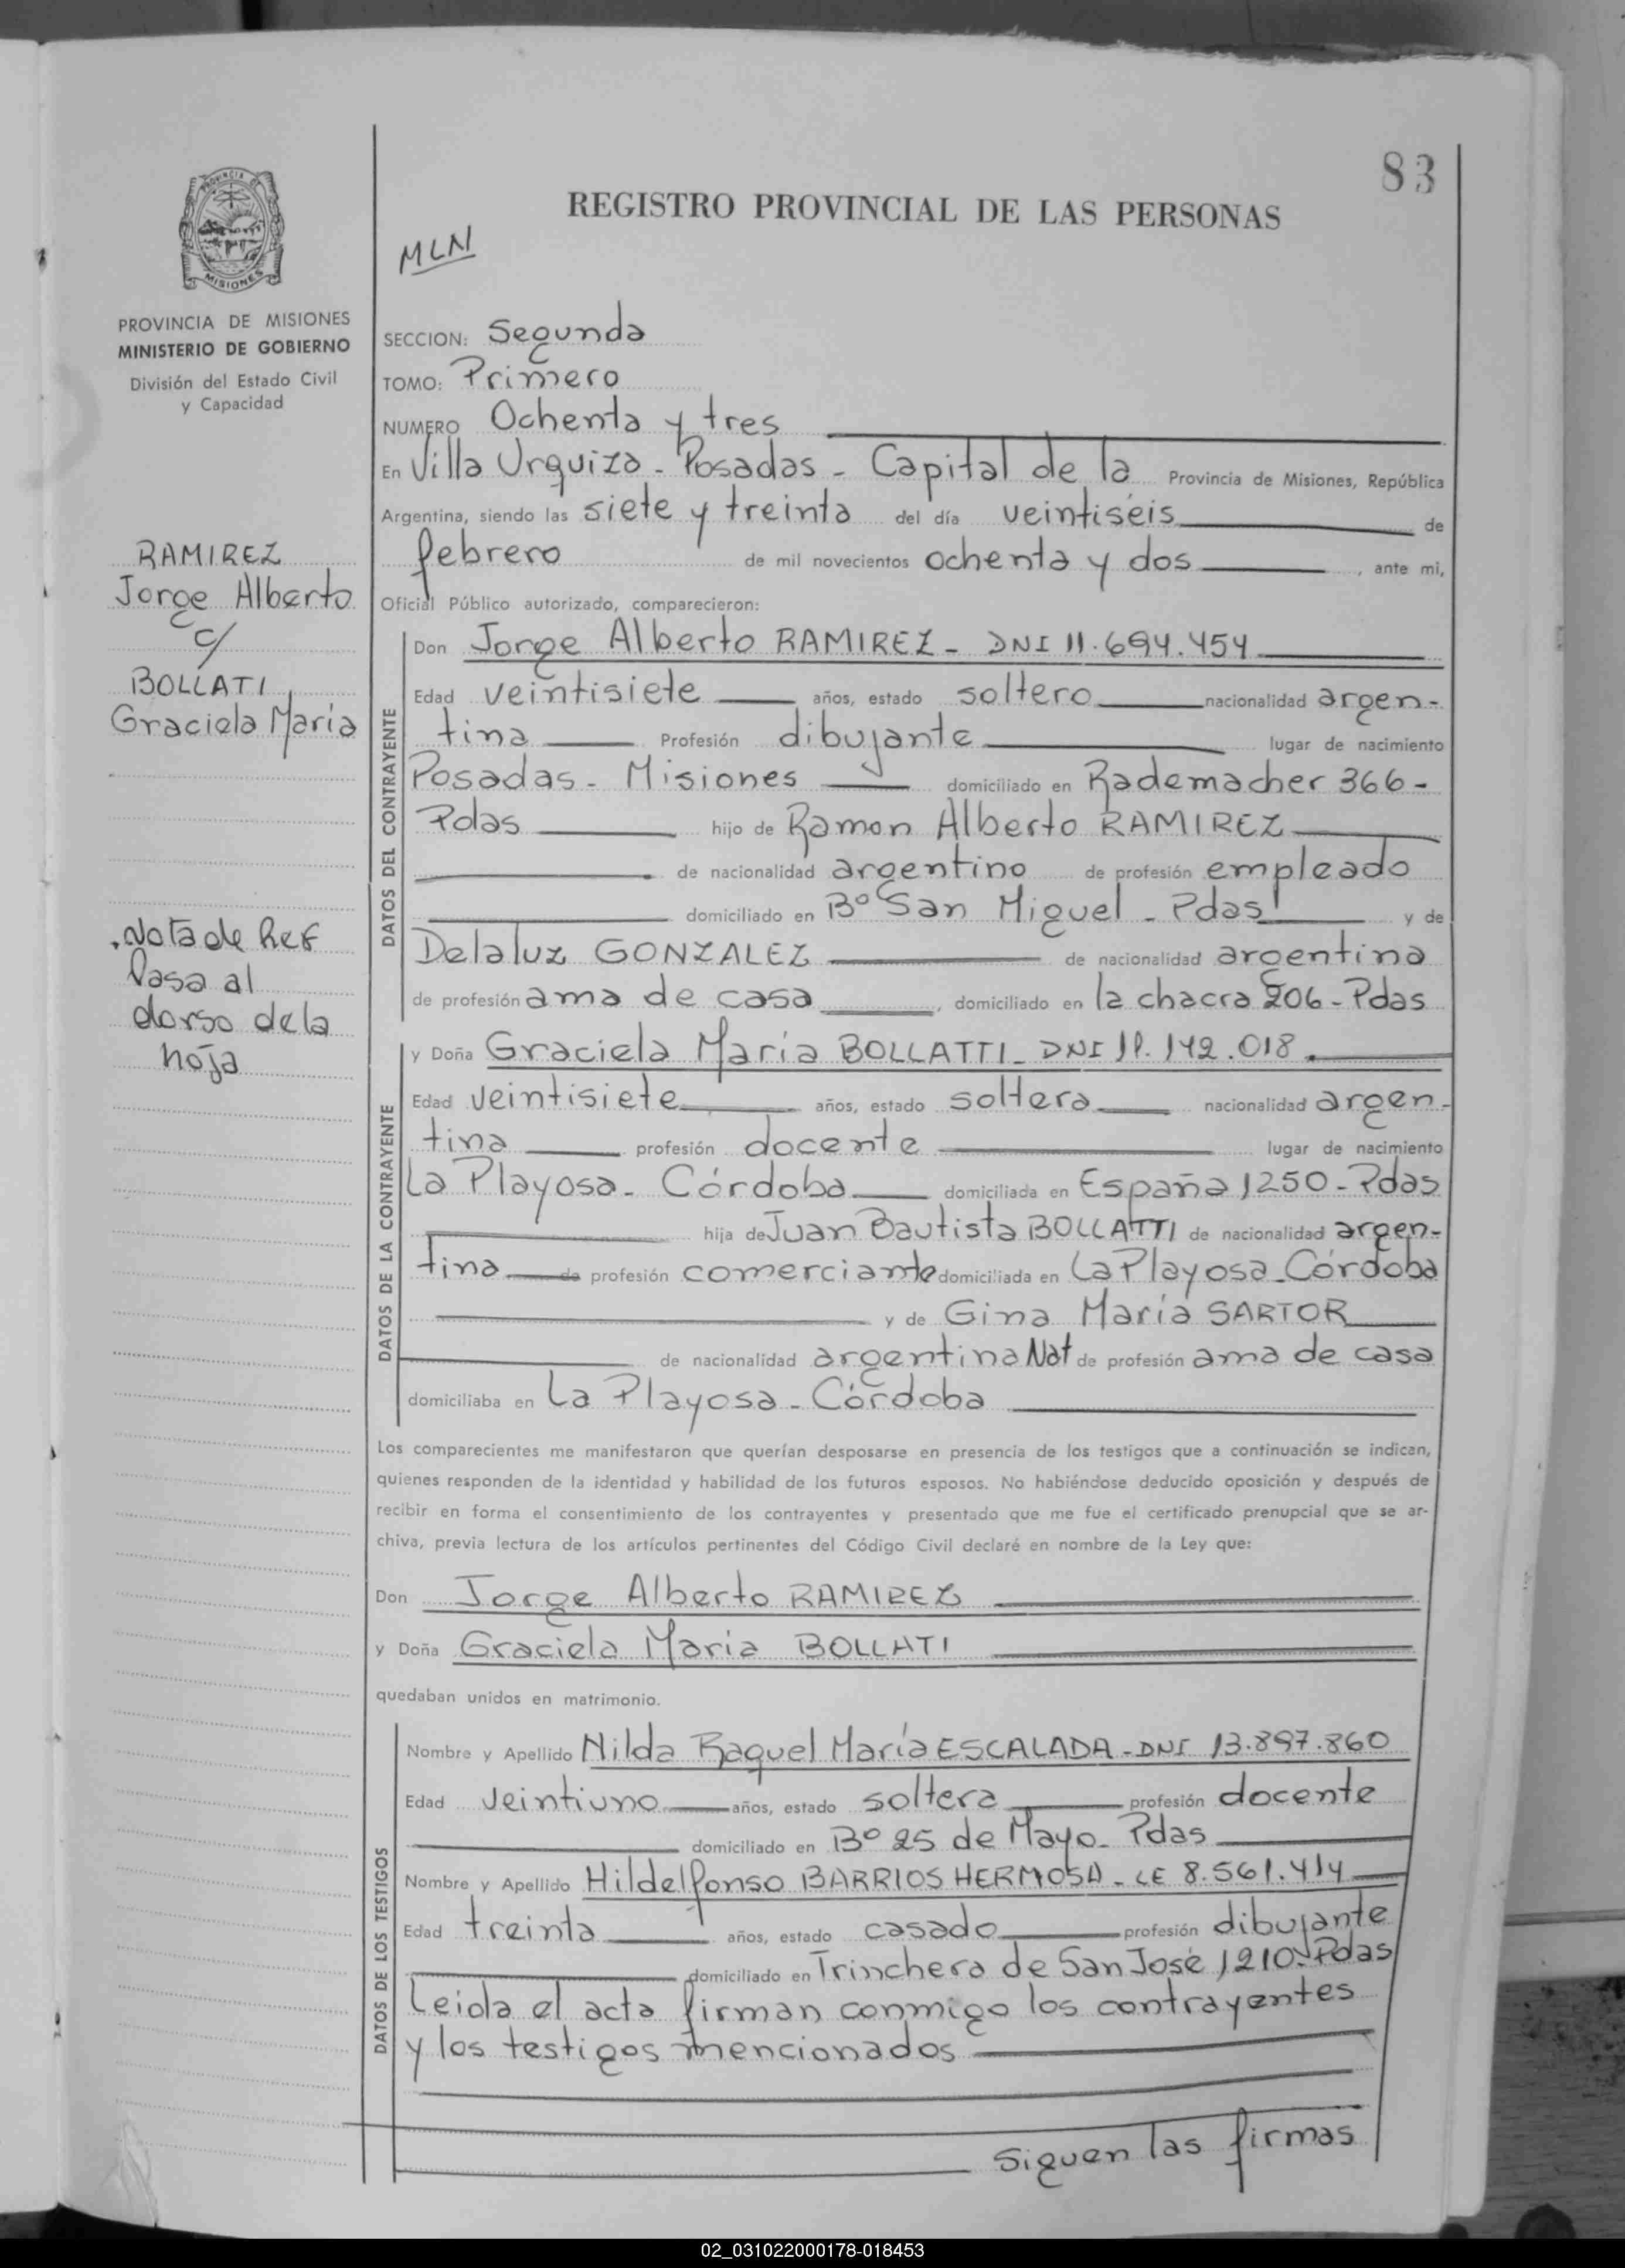 83
REGISTRO PROVINCIAL DE LAS PERSONAS
MLN
PROVINCIA DE
MISIONES
PROVINCIA DE MISIONES
MINISTERIO DE GOBIERNO
División del Estado Civil
y Capacidad
RAMIREZ
Jorge Alberto
c/
BOLLATI
Graciela María
Nota de Ref
Pasa al
dorso de la
hoja
SECCION: Segunda
TOMO: Primero
NUMERO Ochenta y tres
En Villa Urquiza - Posadas - Capital de la Provincia de Misiones, República
Argentina, siendo las siete y treinta del día veintiséis de
febrero de mil novecientos ochenta y dos, ante mi,
Oficial Público autorizado, comparecieron:
DATOS DEL CONTRAYENTE
Don Jorge Alberto RAMIREZ - DNI 11.694.454
Edad veintisiete años, estado soltero nacionalidad argen-
tina Profesión dibujante lugar de nacimiento
Posadas - Misiones domiciliado en Rademacher 366 -
Pdas hijo de Ramon Alberto RAMIREZ
de nacionalidad argentino de profesión empleado
domiciliado en Bº San Miguel - Pdas y de
Delaluz GONZALEZ de nacionalidad argentina
de profesión ama de casa, domiciliado en la chacra 206 - Pdas
DATOS DE LA CONTRAYENTE
y Doña Graciela María BOLLATTI - DNI 11.142.018.
Edad veintisiete años, estado soltera nacionalidad argen-
tina profesión docente lugar de nacimiento
La Playosa - Córdoba domiciliada en España 1250 - Pdas
hija de Juan Bautista BOLLATTI de nacionalidad argen-
tina de profesión comerciante domiciliada en La Playosa - Córdoba
y de Gina María SARTOR
de nacionalidad argentina Nat de profesión ama de casa
domiciliaba en La Playosa - Córdoba
Los comparecientes me manifestaron que querían desposarse en presencia de los testigos que a continuación se indican,
quienes responden de la identidad y habilidad de los futuros esposos. No habiéndose deducido oposición y después de
recibir en forma el consentimiento de los contrayentes y presentado que me fue el certificado prenupcial que se ar-
chiva, previa lectura de los artículos pertinentes del Código Civil declaré en nombre de la Ley que:
Don Jorge Alberto RAMIREZ
y Doña Graciela Maria BOLLATI
quedaban unidos en matrimonio.
DATOS DE LOS TESTIGOS
Nombre y Apellido Nilda Raquel María ESCALADA - DNI 13.897.860
Edad veintiuno años, estado soltera profesión docente
domiciliado en Bº 25 de Mayo - Pdas
Nombre y Apellido Hildelfonso BARRIOS HERMOSA - LE 8.561.414
Edad treinta años, estado casado profesión dibujante
domiciliado en Trinchera de San José 1210 - Pdas
Leida el acta firman conmigo los contrayentes
y los testigos mencionados
Siguen las firmas
02_031022000178-018453